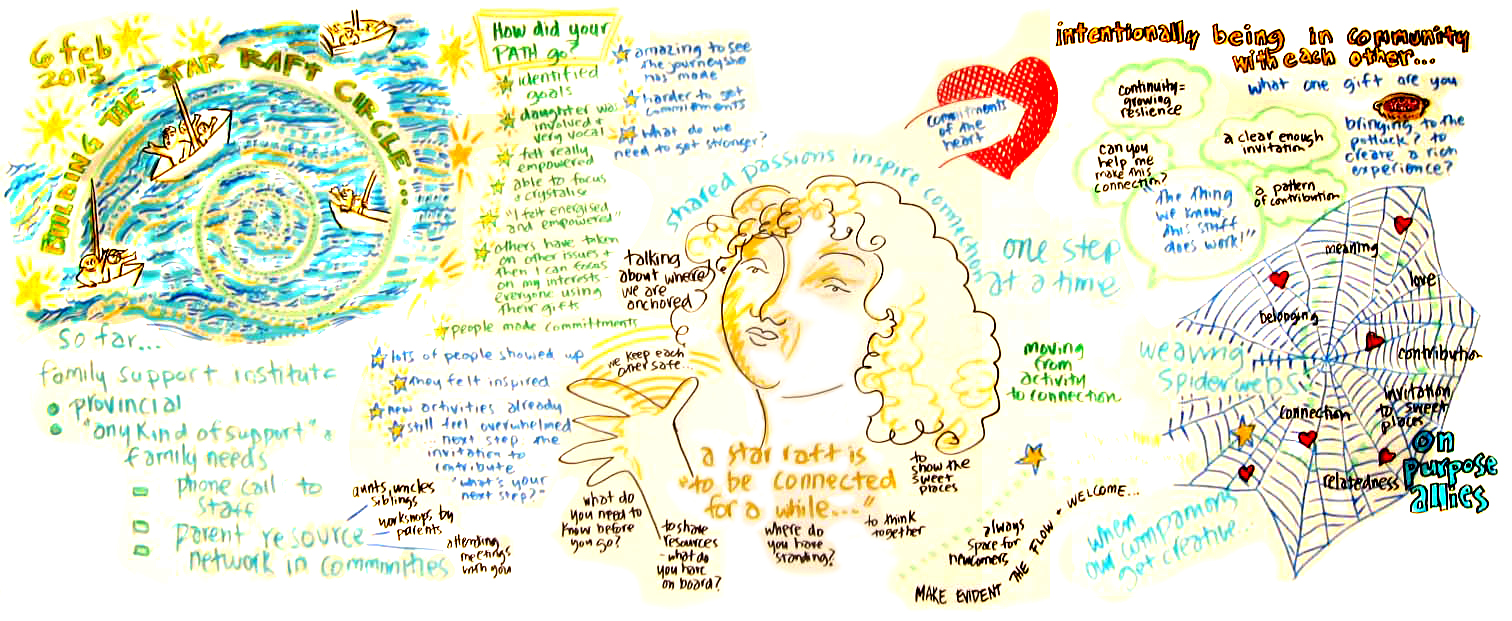 6 feb
2013
BUILDING THE STAR RAFT CIRCLE...
So far...
family support institute
provincial
"any kind of support" a
family needs
phone call to
staff
parent resource
network in communities
aunts, uncles
siblings
workshops by
parents
attending
meetings
with you
How did your
PATH go?
identified
goals
daughter was
involved +
very vocal
felt really
empowered
able to focus
+ crystalise
"I felt energised
and empowered"
others have taken
on other issues +
then I can focus
on my interests
everyone using
their gifts
people made committments
amazing to see
the journey she
has made
harder to get
commitments
what do we
need to get stronger?
lots of people showed up
they felt inspired
new activities already
still feel overwhelmed
... next step: the
invitation to
contribute
"what's your
next step?"
talking
about where
we are
anchored
we keep each
other safe...
shared passions inspire connection
commitments
of the
heart
one step
at a time
moving
from
activity
to connection
a star raft is
"to be connected
for a while..."
what do
you need to
know before
you go?
to share
resources
- what do
you have
on board?
where do
you have
standing?
to think
together
to
show the
sweet
places
always
space for
newcomers
MAKE EVIDENT THE FLOW + WELCOME...
intentionally being in community
with each other...
what one gift are you
bringing to the
potluck? to
create a rich
experience?
continuity =
growing
resilience
a clear enough
invitation?
can you
help me
make this
connection?
a pattern
of contribution
"the thing
we know
this stuff
does work!"
weaving
spiderwebs!
meaning
love
belonging
contribution
invitation
to sweet
places
connection
relatedness
on
purpose
allies
when
our companions
get creative...